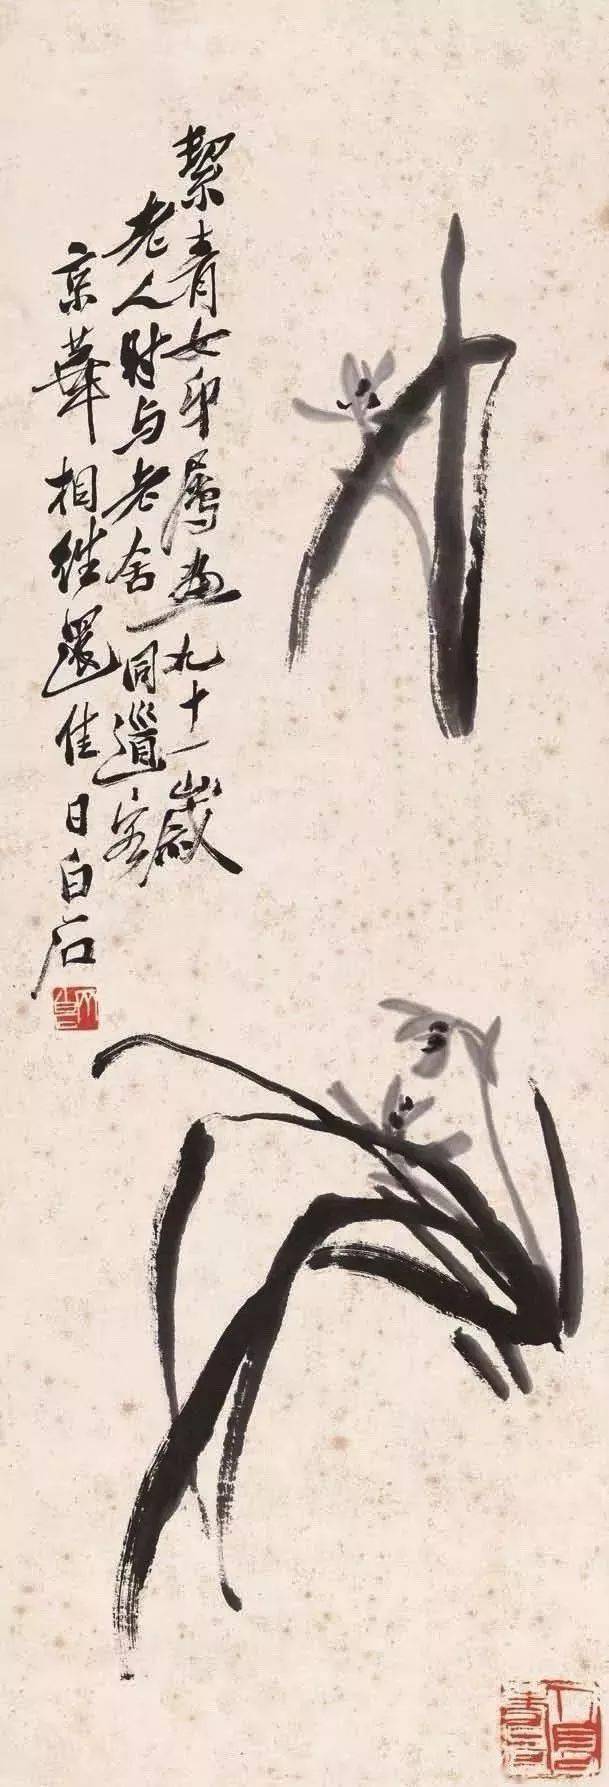 絜青女弟屬畫九十一歲
老人時与老舍同道客
京華相還佳日白石